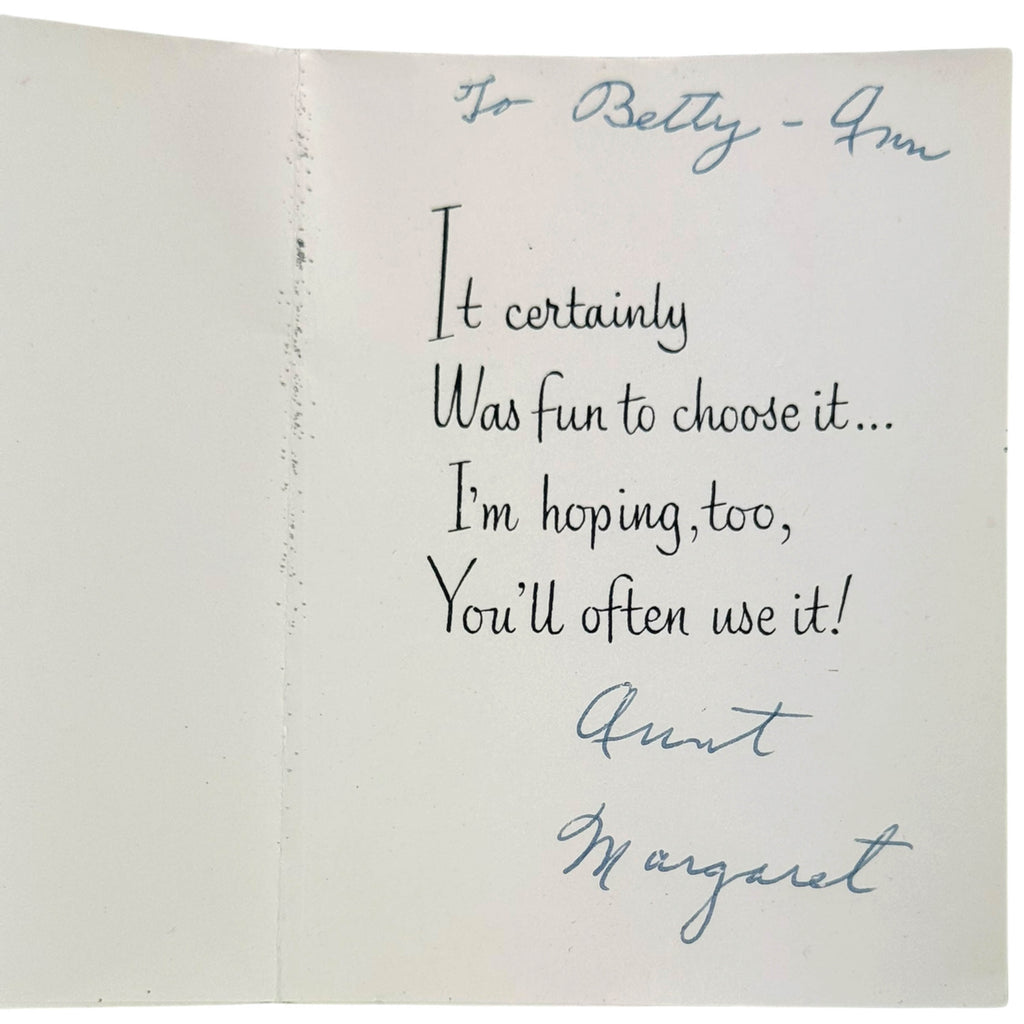 To Betty - Ann
It certainly
Was fun to choose it...
I'm hoping, too,
You'll often use it!
Aunt
Margaret